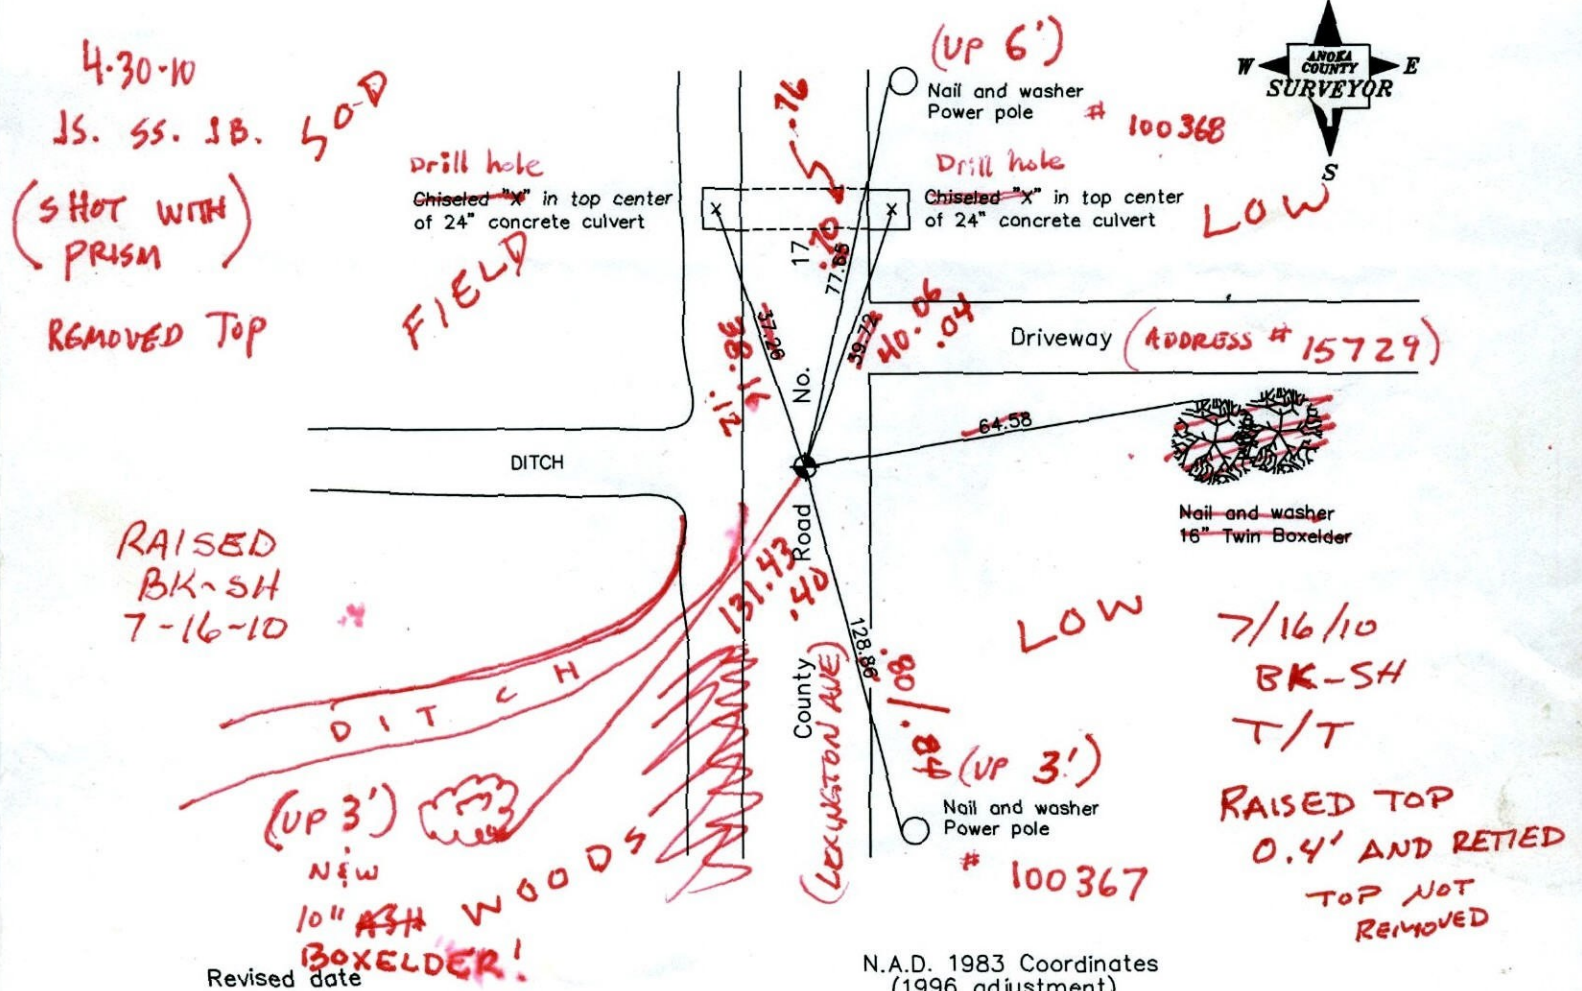 4-30-10
JS. SS. JB.
(SHOT WITH
PRISM)
REMOVED TOP
SOD
FIELD
Drill hole
Chiseled "X" in top center
of 24" concrete culvert
(UP 6')
Nail and washer
Power pole
# 100368
ANOKA
COUNTY
SURVEYOR
W
E
S
Drill hole
Chiseled "X" in top center
of 24" concrete culvert
LOW
.76
.70
77.65
37.26
38.14
.12
39.72
40.06
.04
Driveway
(ADDRESS # 15729)
64.58
Nail and washer
16" Twin Boxelder
DITCH
County Road No. 17
(LEXINGTON AVE)
RAISED
BK-SH
7-16-10
131.43
.40
128.86
.80/
LOW
7/16/10
BK-SH
T/T
RAISED TOP
0.4' AND RETIED
TOP NOT
REMOVED
DITCH
(UP 3')
N&W
10" ASH
BOXELDER!
WOODS
(UP 3')
Nail and washer
Power pole
# 100367
Revised date
N.A.D. 1983 Coordinates
(1996 adjustment)